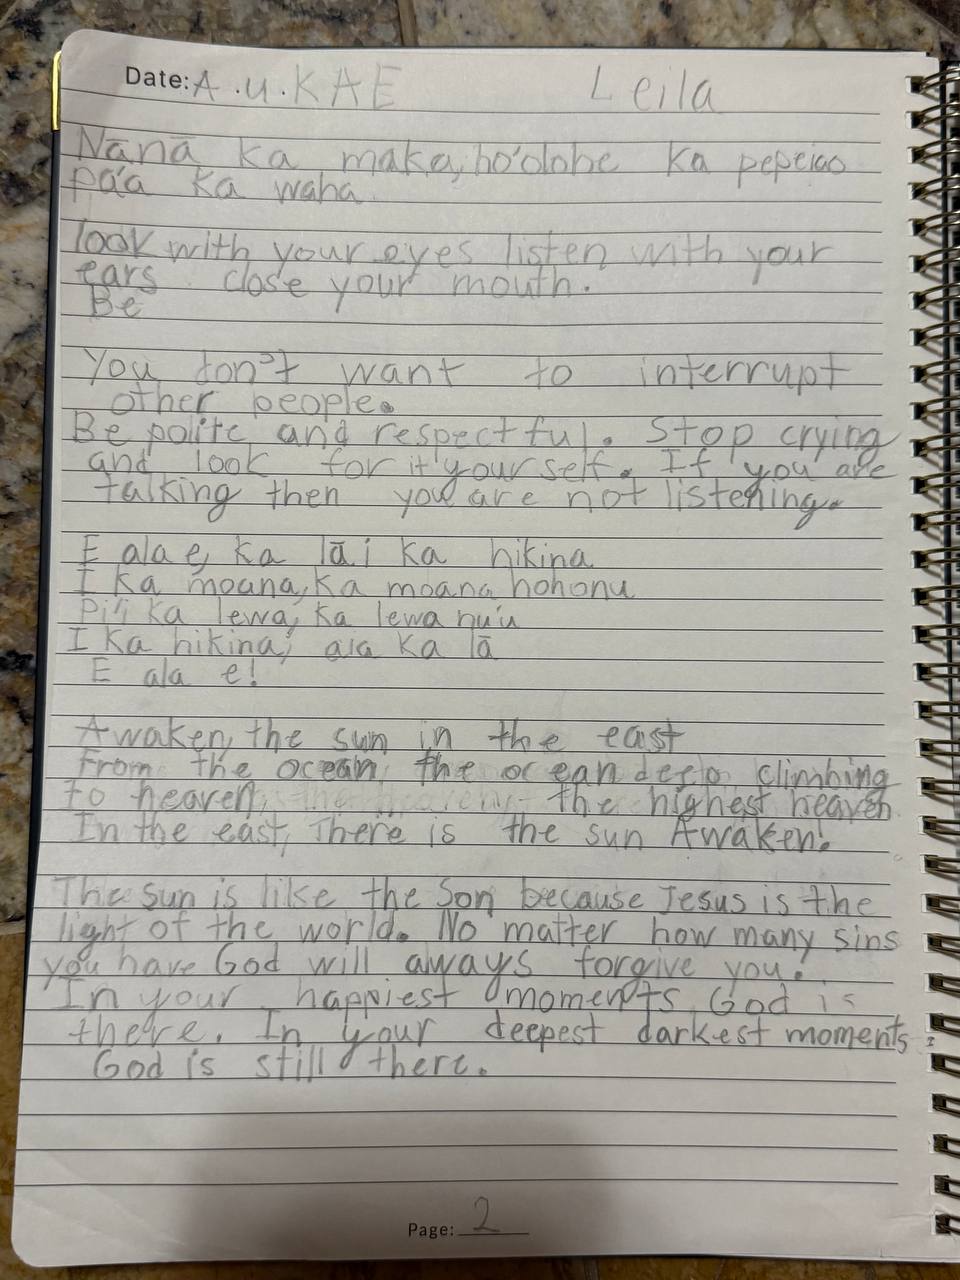 Date: A.u.KAE Leila
Nānā ka maka, ho'olohe ka pepeiao
pa'a ka waha.
look with your eyes listen with your
ears. close your mouth.
Be
You don't want to interrupt
other people.
Be polite and respectful. Stop crying
and look for it yourself. If you are
talking then you are not listening.
E ala e, ka lā i ka hikina
I ka moana, ka moana hohonu
Pi'i ka lewa, ka lewa nu'u
I ka hikina, aia ka lā
E ala e!
Awaken, the sun in the east
From the ocean the ocean deep climbing
to heaven, the heaven, the highest heaven
In the east, There is the sun Awaken!
The sun is like the Son because Jesus is the
light of the world. No matter how many sins
you have God will always forgive you.
In your happiest moments God is
there. In your deepest darkest moments
God is still there.
Page: 2